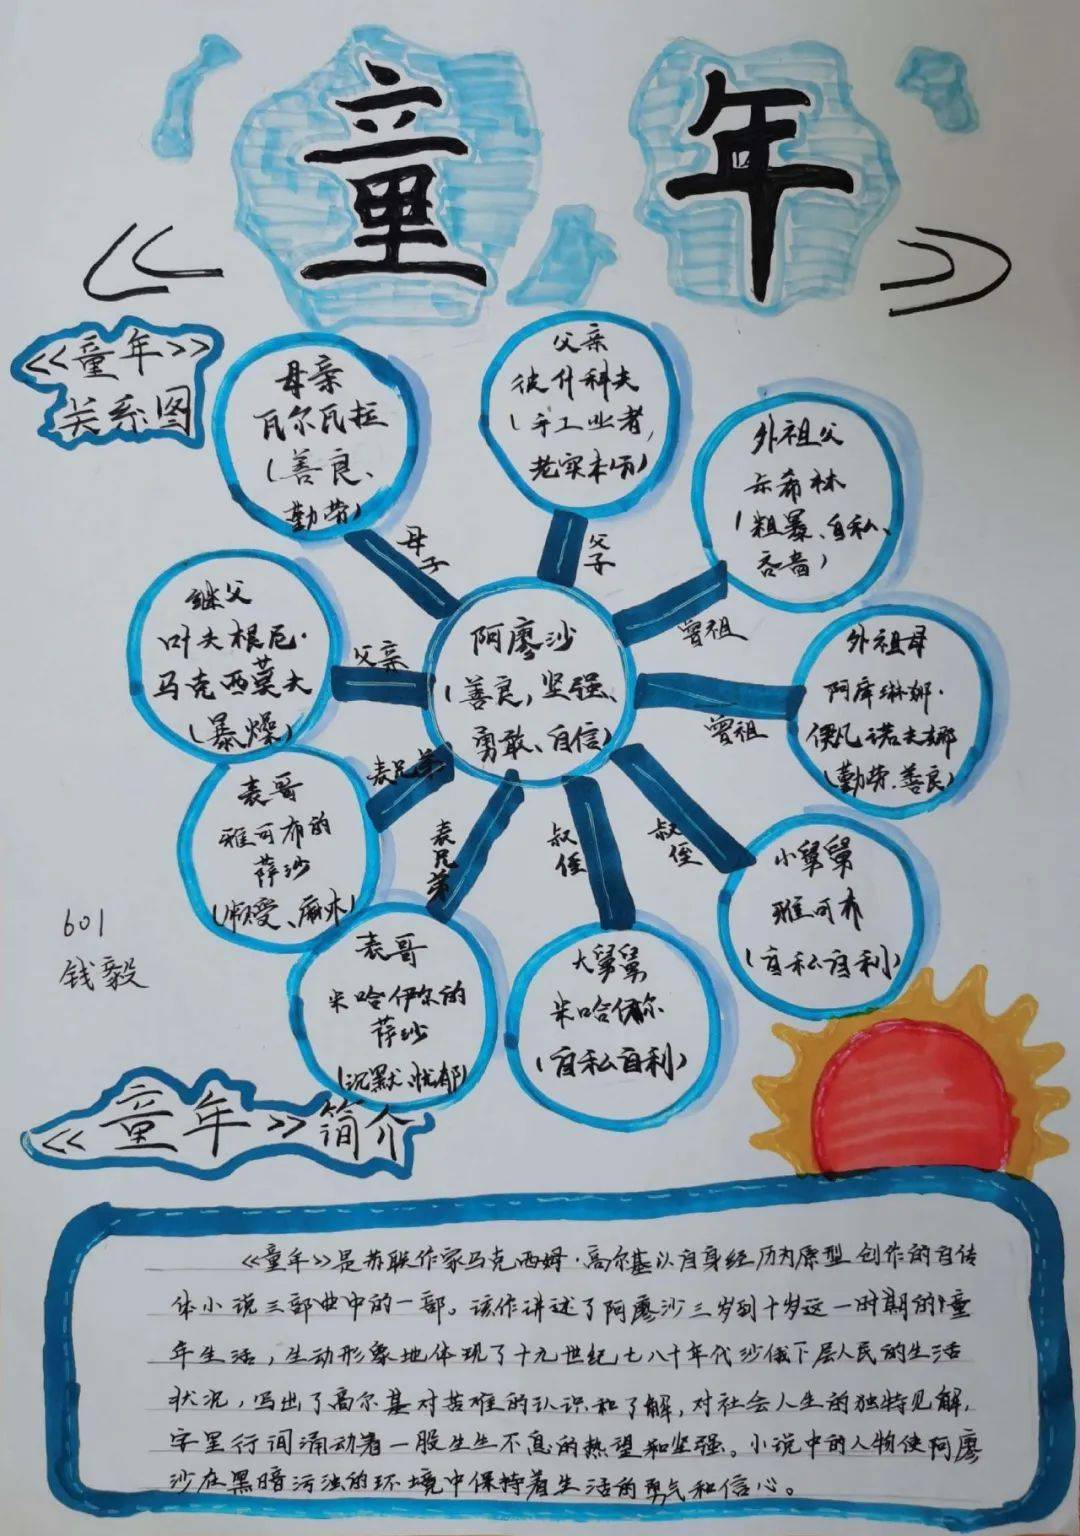 童年
《童年》
关系图
母亲
瓦尔瓦拉
(善良、
勤劳)
父亲
彼什科夫
(手工业者,
老实本分)
外祖父
卡希林
(粗暴、自私、
吝啬)
母子
父子
继父
叶夫根尼·
马克西莫夫
(暴燥)
父亲
阿廖沙
(善良,坚强、
勇敢、自信)
曾祖
外祖母
阿库琳娜·
伊凡诺夫娜
(勤劳.善良)
曾祖
表哥
雅可布的
萨沙
表兄弟
表兄弟
叔侄
叔侄
小舅舅
雅可布
(自私自利)
601
钱毅
表哥
米哈伊尔的
萨沙
(沉默、忧郁)
大舅舅
米哈伊尔
(自私自利)
《童年》简介
《童年》是苏联作家马克西姆·高尔基以自身经历为原型创作的自传
体小说三部曲中的一部。该作讲述了阿廖沙三岁到十岁这一时期的童
年生活,生动形象地体现了十九世纪七八十年代沙俄下层人民的生活
状况,写出了高尔基对苦难的认识和了解,对社会人生的独特见解,
字里行间涌动着一股生生不息的热望和坚强。小说中的人物使阿廖
沙在黑暗污浊的环境中保持着生活的勇气和信心。